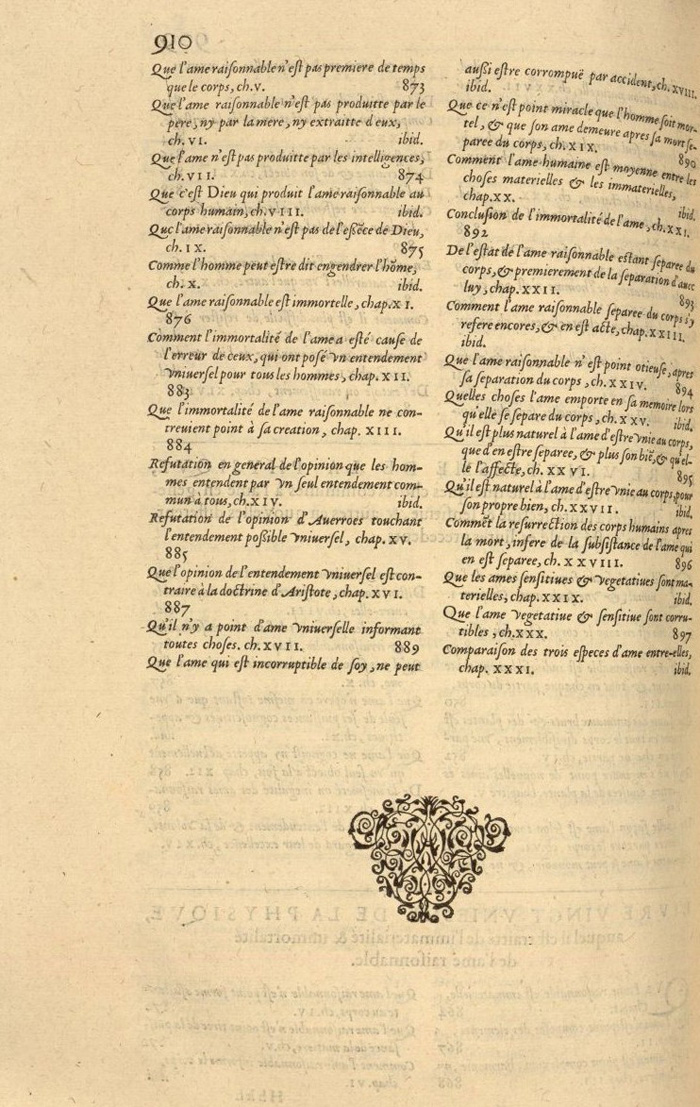 910
Que l'ame raiſonnable n'eſt pas premiere de temps
que le corps, ch.v. 873
Que l'ame raiſonnable n'eſt pas produitte par le
pere, ny par la mere, ny extraitte d'eux,
ch. VI. ibid.
Que l'ame n'eſt pas produitte par les intelligences,
ch. VII. 874
Que c'eſt Dieu qui produit l'ame raiſonnable au
corps humain, ch. VIII. ibid.
Que l'ame raiſonnable n'eſt pas de l'eſſēce de Dieu,
ch. IX. 875
Comme l'homme peut eſtre dit engendrer l'hōme,
ch. X. ibid.
Que l'ame raiſonnable eſt immortelle, chap. XI.
876
Comment l'immortalité de l'ame a eſté cauſe de
l'erreur de ceux, qui ont poſé vn entendement
vniuerſel pour tous les hommes, chap. XII.
883
Que l'immortalité de l'ame raiſonnable ne con-
treuient point à ſa creation, chap. XIII.
884
Refutation en general de l'opinion que les hom-
mes entendent par vn ſeul entendement com-
mun à tous, ch. XIV. ibid.
Refutation de l'opinion d'Auerroes touchant
l'entendement poſſible vniuerſel, chap. XV.
885
Que l'opinion de l'entendement vniuerſel eſt con-
traire à la doctrine d'Ariſtote, chap. XVI.
887
Qu'il n'y a point d'ame vniuerſelle informant
toutes choſes. ch. XVII. 889
Que l'ame qui eſt incorruptible de ſoy, ne peut
auſſi eſtre corrompuë par accident, ch. XVIII.
ibid.
Que ce n'eſt point miracle que l'homme ſoit mor-
tel, & que ſon ame demeure apres ſa mort ſe-
paree du corps, ch. XIX. 890
Comment l'ame humaine eſt moyenne entre les
choſes materielles & les immaterielles,
chap. XX. ibid.
Concluſion de l'immortalité de l'ame, ch. XXI.
892
De l'eſtat de l'ame raiſonnable eſtant ſeparee du
corps, & premierement de la ſeparation d'auec
luy, chap. XXII. 893
Comment l'ame raiſonnable ſeparee du corps s'y
refere encores, & en eſt acte, chap. XXIII.
ibid.
Que l'ame raiſonnable n'eſt point otieuſe, apres
ſa ſeparation du corps, ch. XXIV. 894
Quelles choſes l'ame emporte en ſa memoire lors
qu'elle ſe ſepare du corps, ch. XXV. ibid.
Qu'il eſt plus naturel à l'ame d'eſtre vnie au corps,
que d'en eſtre ſeparee, & plus ſon biē, & qu'el-
le l'affecte, ch. XXVI. 895
Qu'il eſt naturel à l'ame d'eſtre vnie au corps, pour
ſon propre bien, ch. XXVII. ibid.
Commēt la reſurrection des corps humains apres
la mort, infere de la ſubſiſtance de l'ame qui
en eſt ſeparee, ch. XXVIII. 896
Que les ames ſenſitiues & vegetatiues ſont ma-
terielles, chap. XXIX. ibid.
Que l'ame vegetatiue & ſenſitiue ſont corru-
tibles, ch. XXX. 897
Comparaiſon des trois eſpeces d'ame entre-elles,
chap. XXXI. ibid.